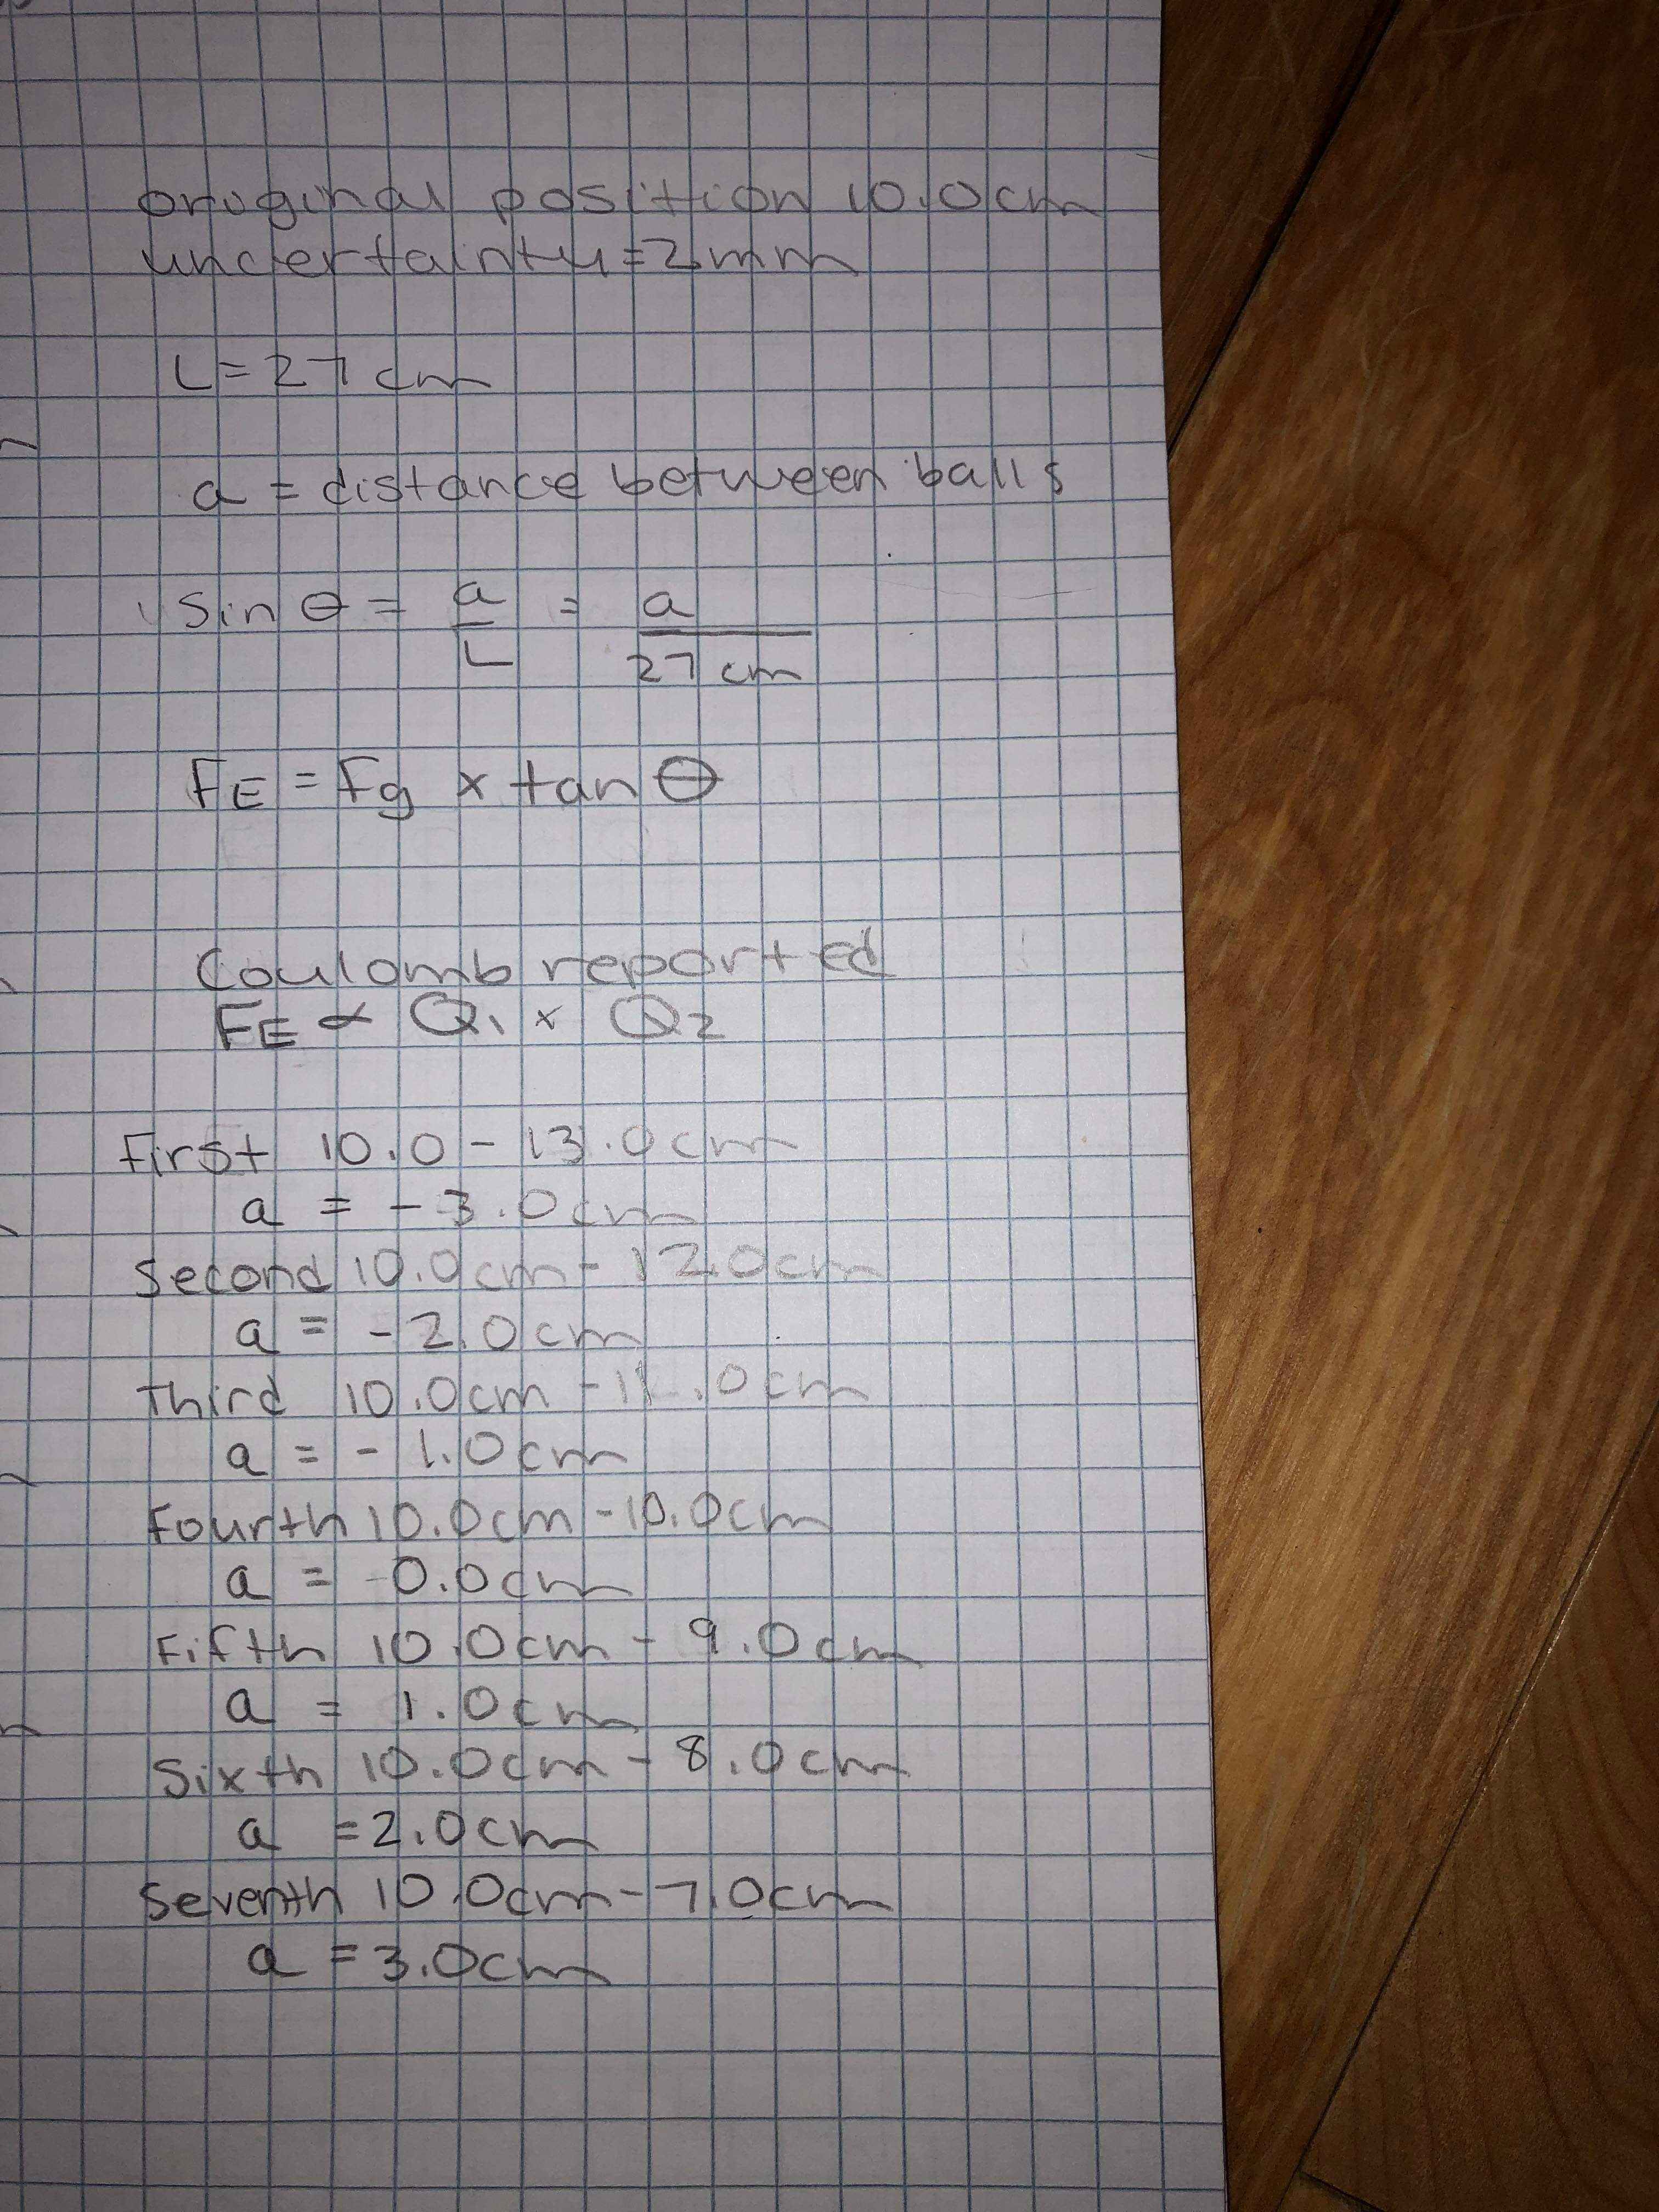 original position 10.0cm
uncertainty=2mm
L=27cm
a = distance between balls
sin θ = a/L = a/27cm
FE = Fg x tan θ
Coulomb reported
FE ∝ Q1 x Q2
First 10.0 - 13.0cm
a = - 3.0cm
Second 10.0cm - 12.0cm
a = - 2.0cm
Third 10.0cm - 11.0cm
a = - 1.0cm
Fourth 10.0cm - 10.0cm
a = 0.0cm
Fifth 10.0cm - 9.0cm
a = 1.0cm
Sixth 10.0cm - 8.0cm
a = 2.0cm
Seventh 10.0cm - 7.0cm
a = 3.0cm